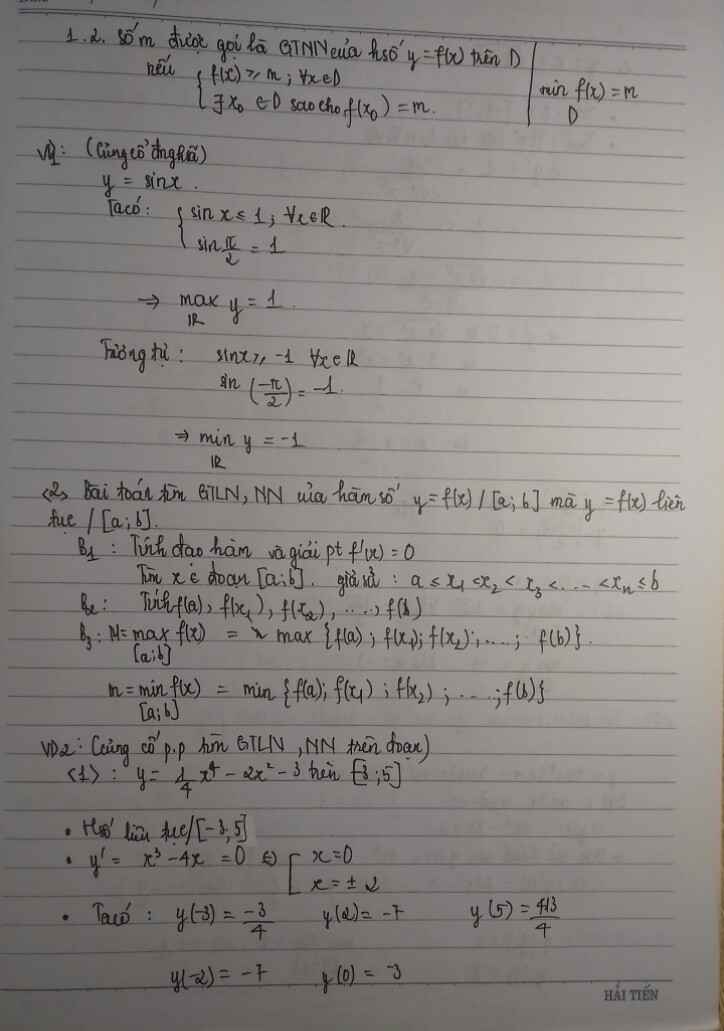 1.2. Số m được gọi là GTNN của hsố y = f(x) trên D
nếu { f(x) ≥ m ; ∀x∈D
∃ x₀ ∈ D sao cho f(x₀) = m.
min f(x) = m
D
VD1: (Củng cố đ nghĩa)
y = sinx.
Ta có: { sin x ≤ 1 ; ∀x∈ℝ.
sin π/2 = 1
⇒ max y = 1.
ℝ
Tương tự: sinx ≥ -1 ∀x∈ℝ
sin (-π/2) = -1.
⇒ min y = -1
ℝ
<2> Bài toán tìm GTLN, NN của hàm số y = f(x) / [a; b] mà y = f(x) liên
tục / [a; b].
B₁ : Tính đạo hàm và giải pt f'(x) = 0
Tìm x ∈ đoạn [a; b]. giả sử : a ≤ x₁ < x₂ < x₃ < .... < xₙ ≤ b
B₂ : Tính f(a), f(x₁), f(x₂), ...., f(b)
B₃ : M = max f(x) = max {f(a) ; f(x₁); f(x₂); ....; f(b)}.
[a;b]
m = min f(x) = min {f(a); f(x₁) ; f(x₂) ; ....; f(b)}
[a;b]
VD2: Củng cố p.p tìm GTLN, NN trên đoạn)
<1> : y = 1/4 x⁴ - 2x² - 3 trên [-3 ; 5]
• Hsố liên tục/[-3,5]
• y' = x³ - 4x = 0 ⇔ [ x = 0
x = ± 2
• Ta có : y(-3) = -3/4 y(2) = -7 y(5) = 413/4
y(-2) = -7 y(0) = -3
HẢI TIẾN